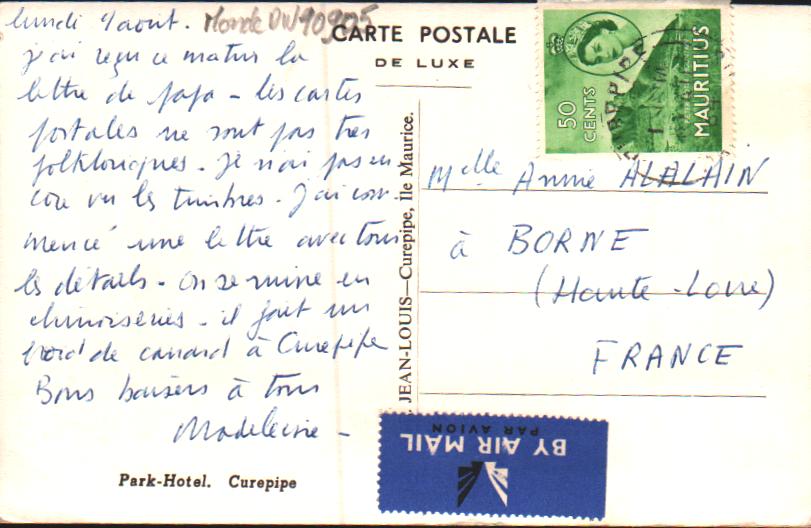 lundi 4 aout.
j'ai reçu ce matin la
lettre de papa - les cartes
postales ne sont pas très
folkloriques. Je n'ai pas en
core vu les timbres. J'ai com
mencé une lettre avec tous
les détails - on se ruine en
chinoiseries - il fait un
froid de canard à Curepipe
Bons baisers à tous
Madeleine -
Park-Hotel. Curepipe
CARTE POSTALE
DE LUXE
JEAN-LOUIS—Curepipe, Ile Maurice.
50
CENTS
MAURITIUS
Melle Annie ALALAIN
à BORNE
(Haute-Loire)
FRANCE
BY AIR MAIL
PAR AVION